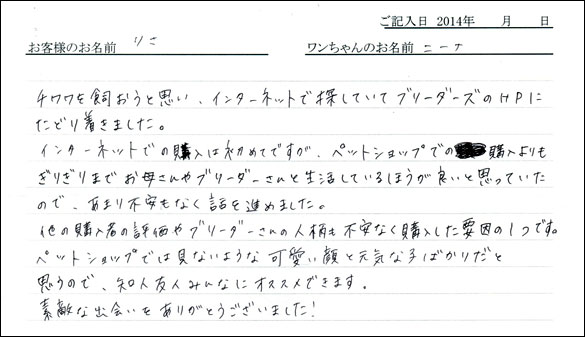 ご記入日 2014年 月 日
お客様のお名前 りさ ワンちゃんのお名前 ニーナ
チワワを飼おうと思い、インターネットで探していてブリーダーズのHPに
たどり着きました。
インターネットでの購入は初めてですが、ペットショップでの購入よりも
ぎりぎりまでお母さんやブリーダーさんと生活しているほうが良いと思っていた
ので、あまり不安もなく話を進めました。
他の購入者の評価やブリーダーさんの人柄も不安なく購入した要因の1つです。
ペットショップでは見ないような可愛い顔と元気な子ばかりだと
思うので、知人友人みんなにオススメできます。
素敵な出会いをありがとうございました!